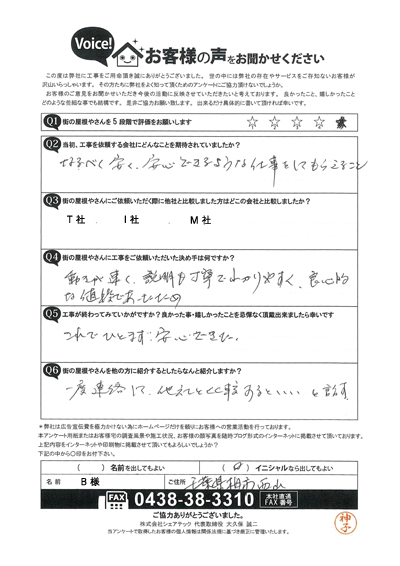 Voice!
お客様の声をお聞かせください
この度は弊社に工事をご用命頂き誠にありがとうございました。世の中には弊社の存在やサービスをご存知ないお客様が
沢山いらっしゃいます。その方たちに弊社をよく知って頂くためのアンケートにご協力頂けないでしょうか。
お客様のご意見をお聞かせいただき今後の活動に反映させていただきたいと考えております。良かったこと、嬉しかったこと
どのような些細な事でも結構です。是非ご協力お願い致します。出来るだけ具体的に書いて頂ければ幸いです。
Q1 街の屋根やさんを5段階で評価をお願いします ☆ ☆ ☆ ☆ ★
Q2 当初、工事を依頼する会社にどんなことを期待されていましたか?
なるべく安く、安心できるような仕事をしてもらえること
Q3 街の屋根やさんにご依頼いただく際に他社と比較しました方はどこの会社と比較しましたか?
T社 . I社 M社
Q4 街の屋根やさんに工事をご依頼いただいた決め手は何ですか?
動きが早く、説明も丁寧でわかりやすく、良心的
な値段であったため
Q5 工事が終わってみていかがですか?良かった事・嬉しかったことを忌憚なく頂戴出来ましたら幸いです
これでひとまず安心できた。
Q6 街の屋根やさんを他の方に紹介するとしたらなんと紹介しますか?
一度連絡して、他社と比較するといい と話す
*弊社は広告宣伝費を極力かけない為にホームページだけを頼りにお客様への営業活動を行っております。
本アンケート用紙またはお客様宅の調査風景や施工状況、お客様の顔写真を随時ブログ形式のインターネットに掲載させて頂いております。
上記内容をインターネットや印刷物に掲載させて頂いてもよろしいでしょうか?
下記の中から〇印をお付下さい。
( ) 名前を出してもよい (〇) イニシャルなら出してもよい
名前 B様 ご住所 千葉県柏市西山
FAX 0438-38-3310 本社直通 FAX番号
ご協力ありがとうございました。
株式会社シェアテック 代表取締役 大久保 誠二
当アンケートで取得したお客様の個人情報は関係法規に基づき厳正に管理いたします。
神子